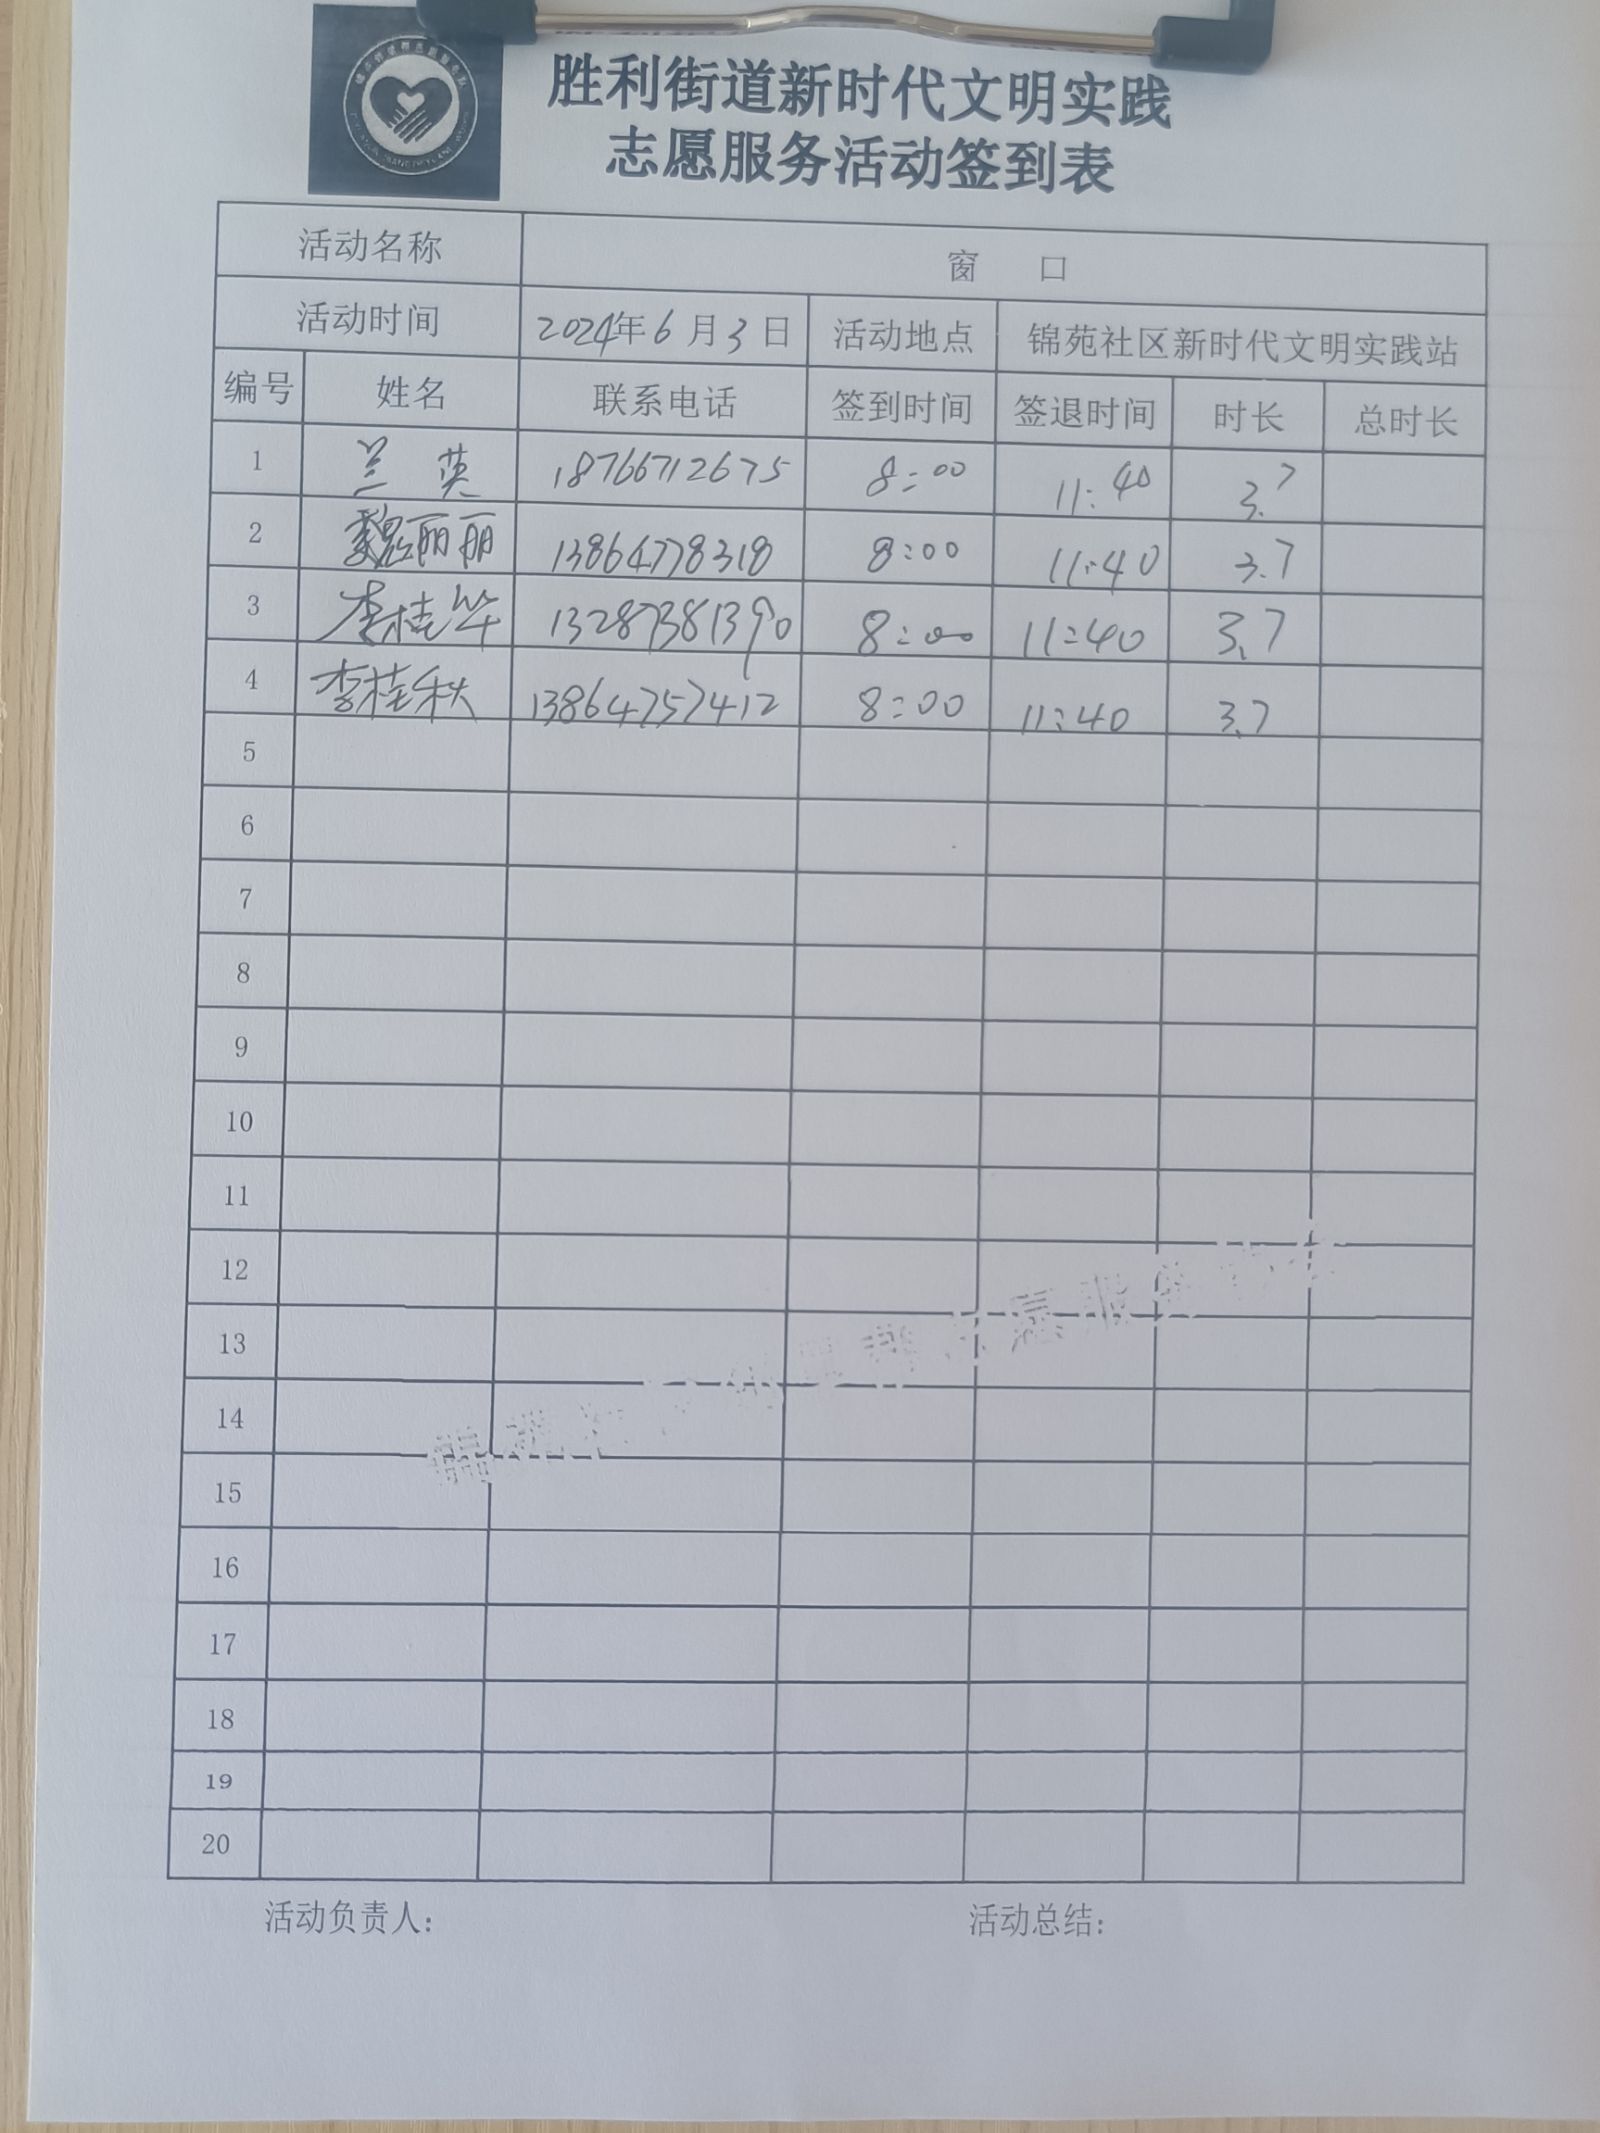 胜利街道新时代文明实践
志愿服务活动签到表
活动名称 窗 口
活动时间 2024年6月3日 活动地点 锦苑社区新时代文明实践站
编号 姓名 联系电话 签到时间 签退时间 时长 总时长
1 兰英 18766712675 8:00 11:40 3.7
2 魏丽丽 13864778318 8:00 11:40 3.7
3 李桂华 13287381390 8:00 11:40 3.7
4 李桂秋 13864757412 8:00 11:40 3.7
5
6
7
8
9
10
11
12
13
14
15
16
17
18
19
20
活动负责人: 活动总结: